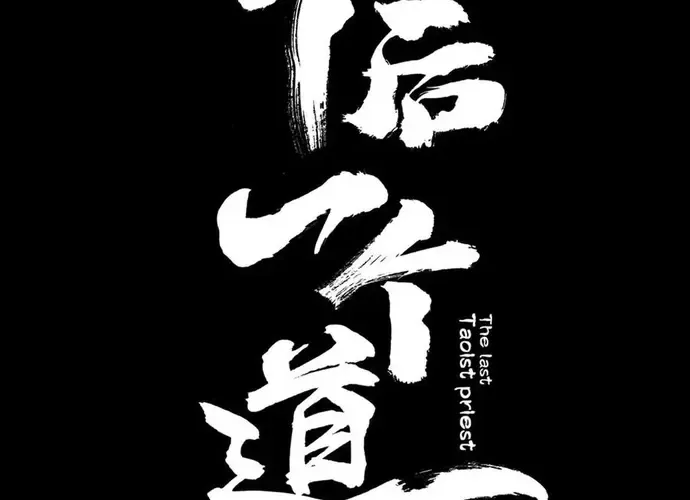 后一个道
The last
Taoist priest